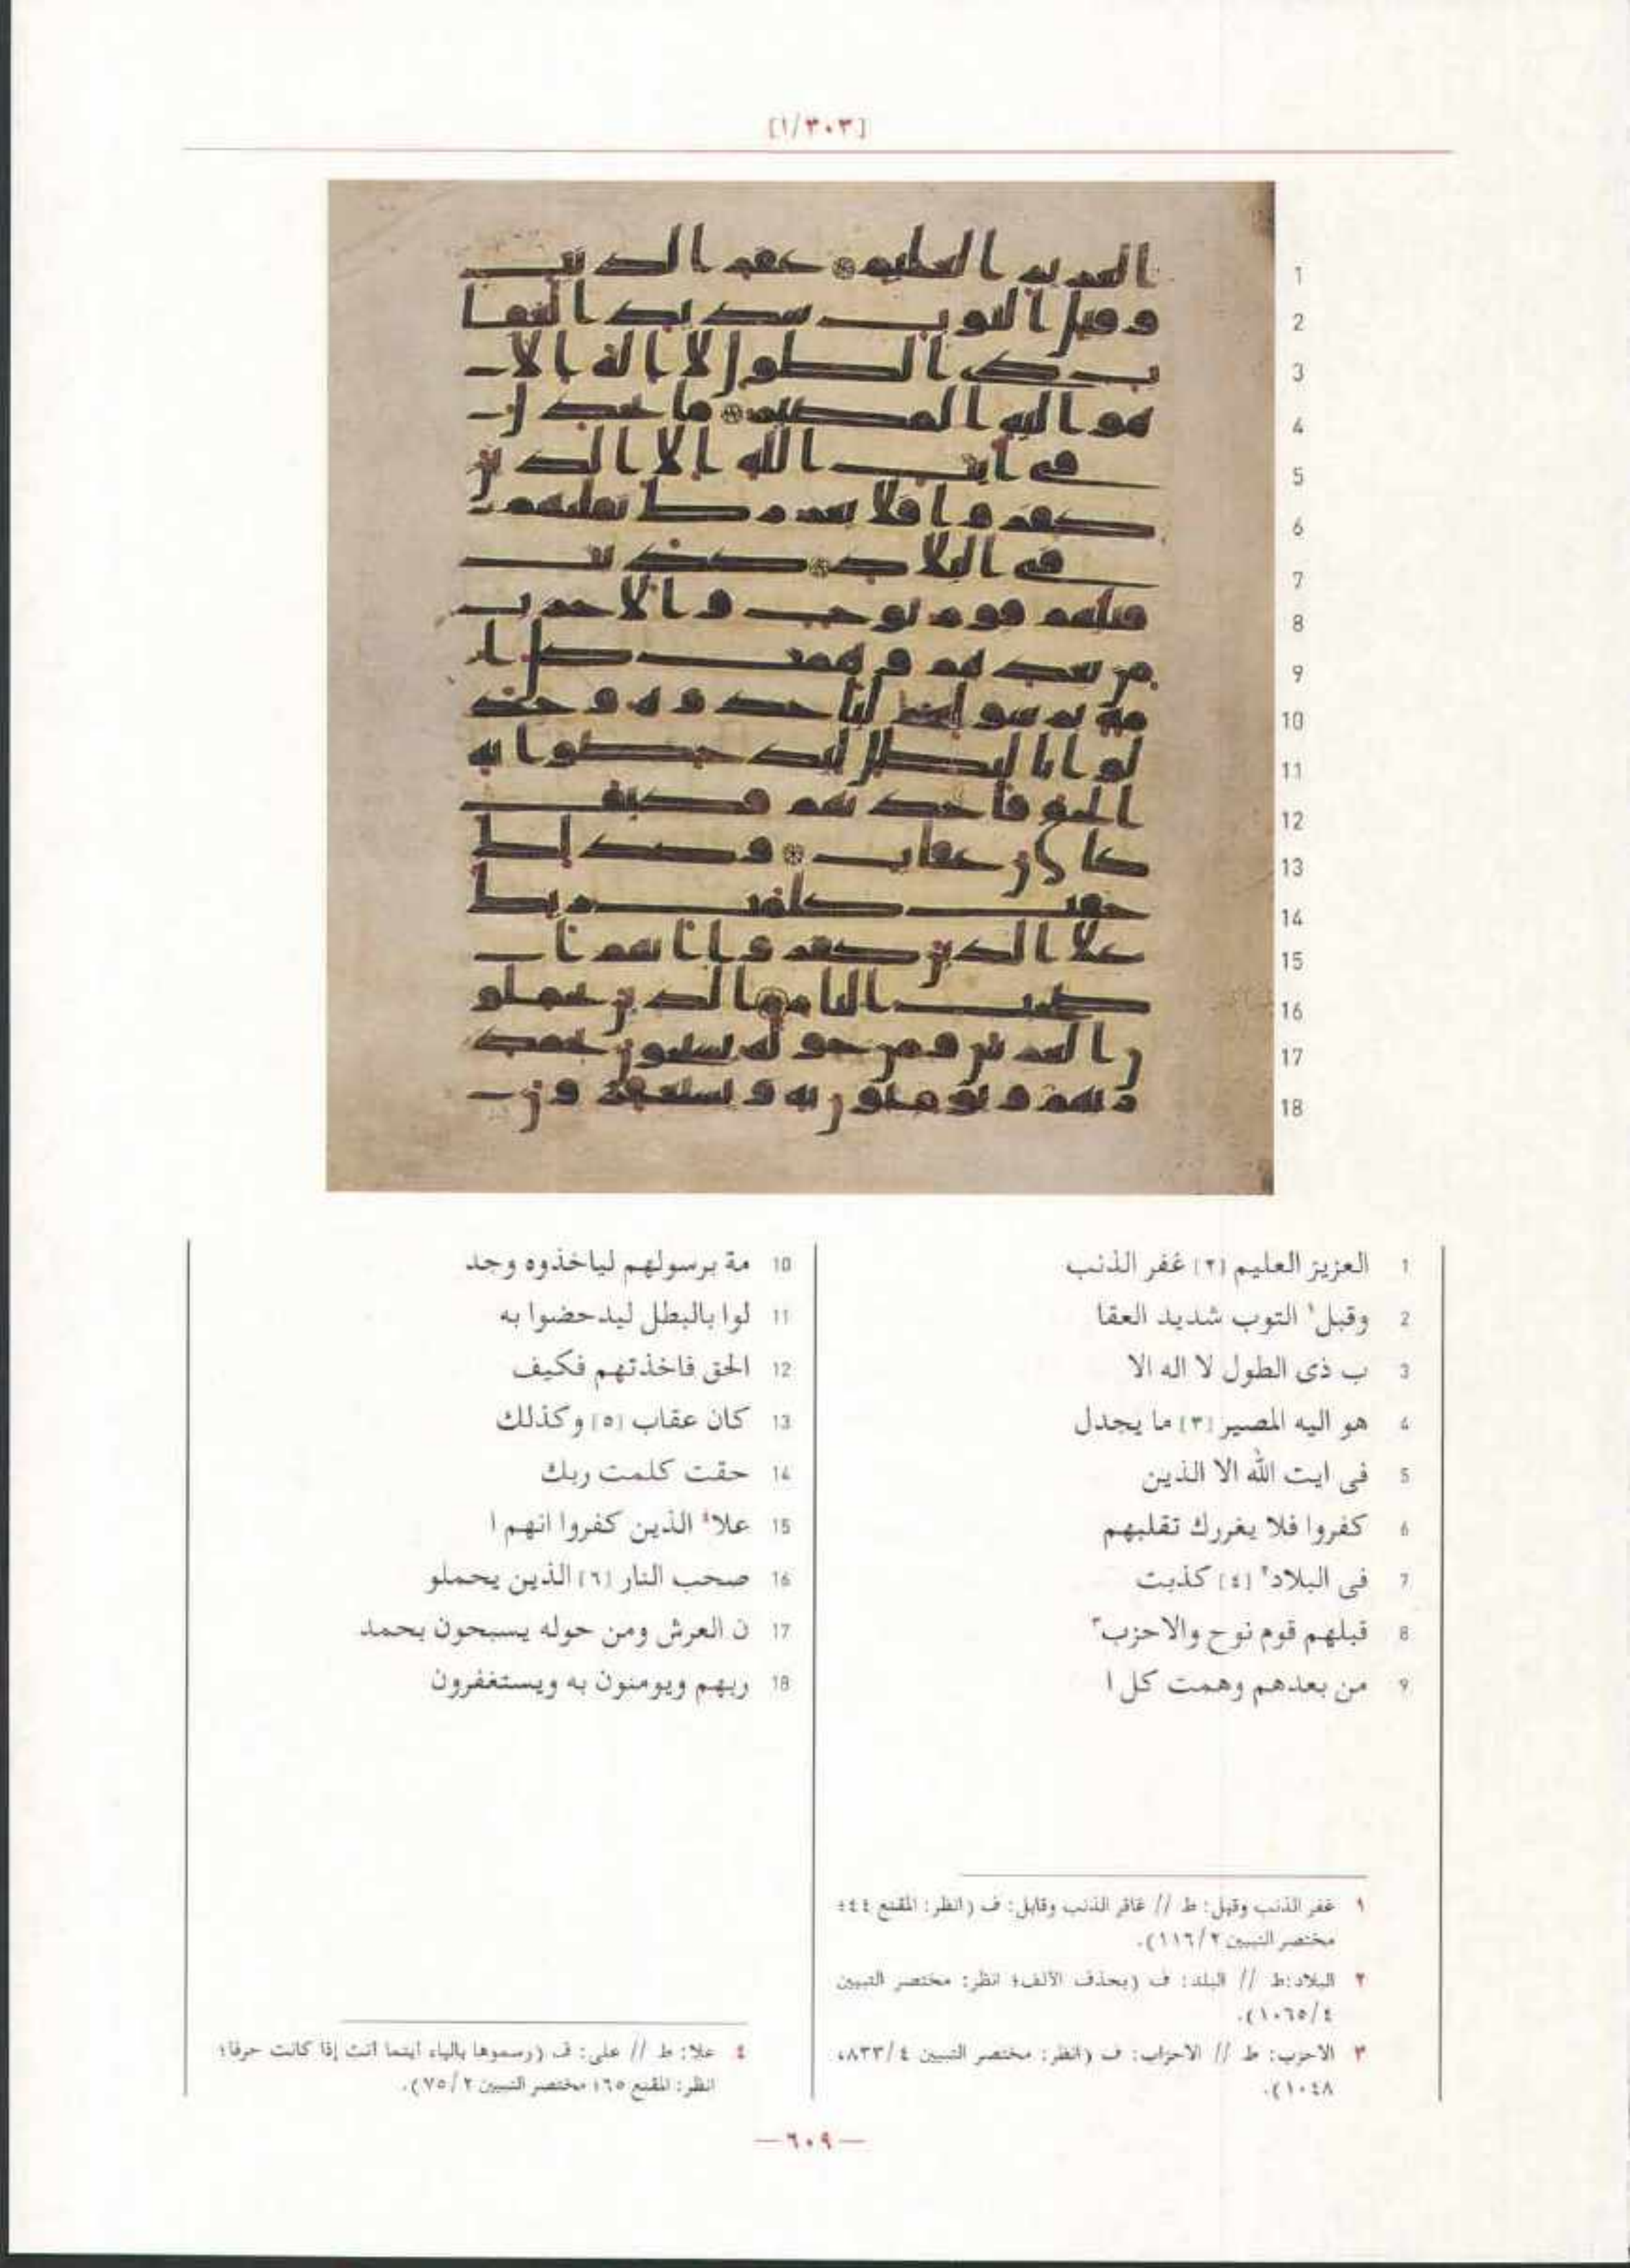 [١/٣٠٣]
1 العزيز العليم [٢] غفر الذنب
2 وقبل١ التوب شديد العقا
3 ب ذى الطول لا اله الا
4 هو اليه المصير [٣] ما يجدل
5 فى ايت الله الا الذين
6 كفروا فلا يغررك تقلبهم
7 فى البلاد٢ [٤] كذبت
8 قبلهم قوم نوح والاحزب٣
9 من بعدهم وهمت كل ا
10 مة برسولهم لياخذوه وجد
11 لوا بالبطل ليدحضوا به
12 الحق فاخذتهم فكيف
13 كان عقاب [٥] وكذلك
14 حقت كلمت ربك
15 علا٤ الذين كفروا انهم ا
16 صحب النار [٦] الذين يحملو
17 ن العرش ومن حوله يسبحون بحمد
18 ربهم ويومنون به ويستغفرون
١ غفر الذنب وقبل: ط // غافر الذنب وقابل: ف (انظر: المقنع ٤٤؛
مختصر التبيين ١١٦/٢).
٢ البلاد:ط // البلد: ف (بحذف الألف؛ انظر: مختصر التبيين
١٠٦٥/٤).
٣ الاحزب: ط // الاحزاب: ف (انظر: مختصر التبيين ٨٣٣/٤،
١٠٤٨).
٤ علا: ط // على: ف (رسموها بالياء أينما أتت إذا كانت حرفا؛
انظر: المقنع ٦٥؛ مختصر التبيين ٧٥/٢).
—٦٠٩—